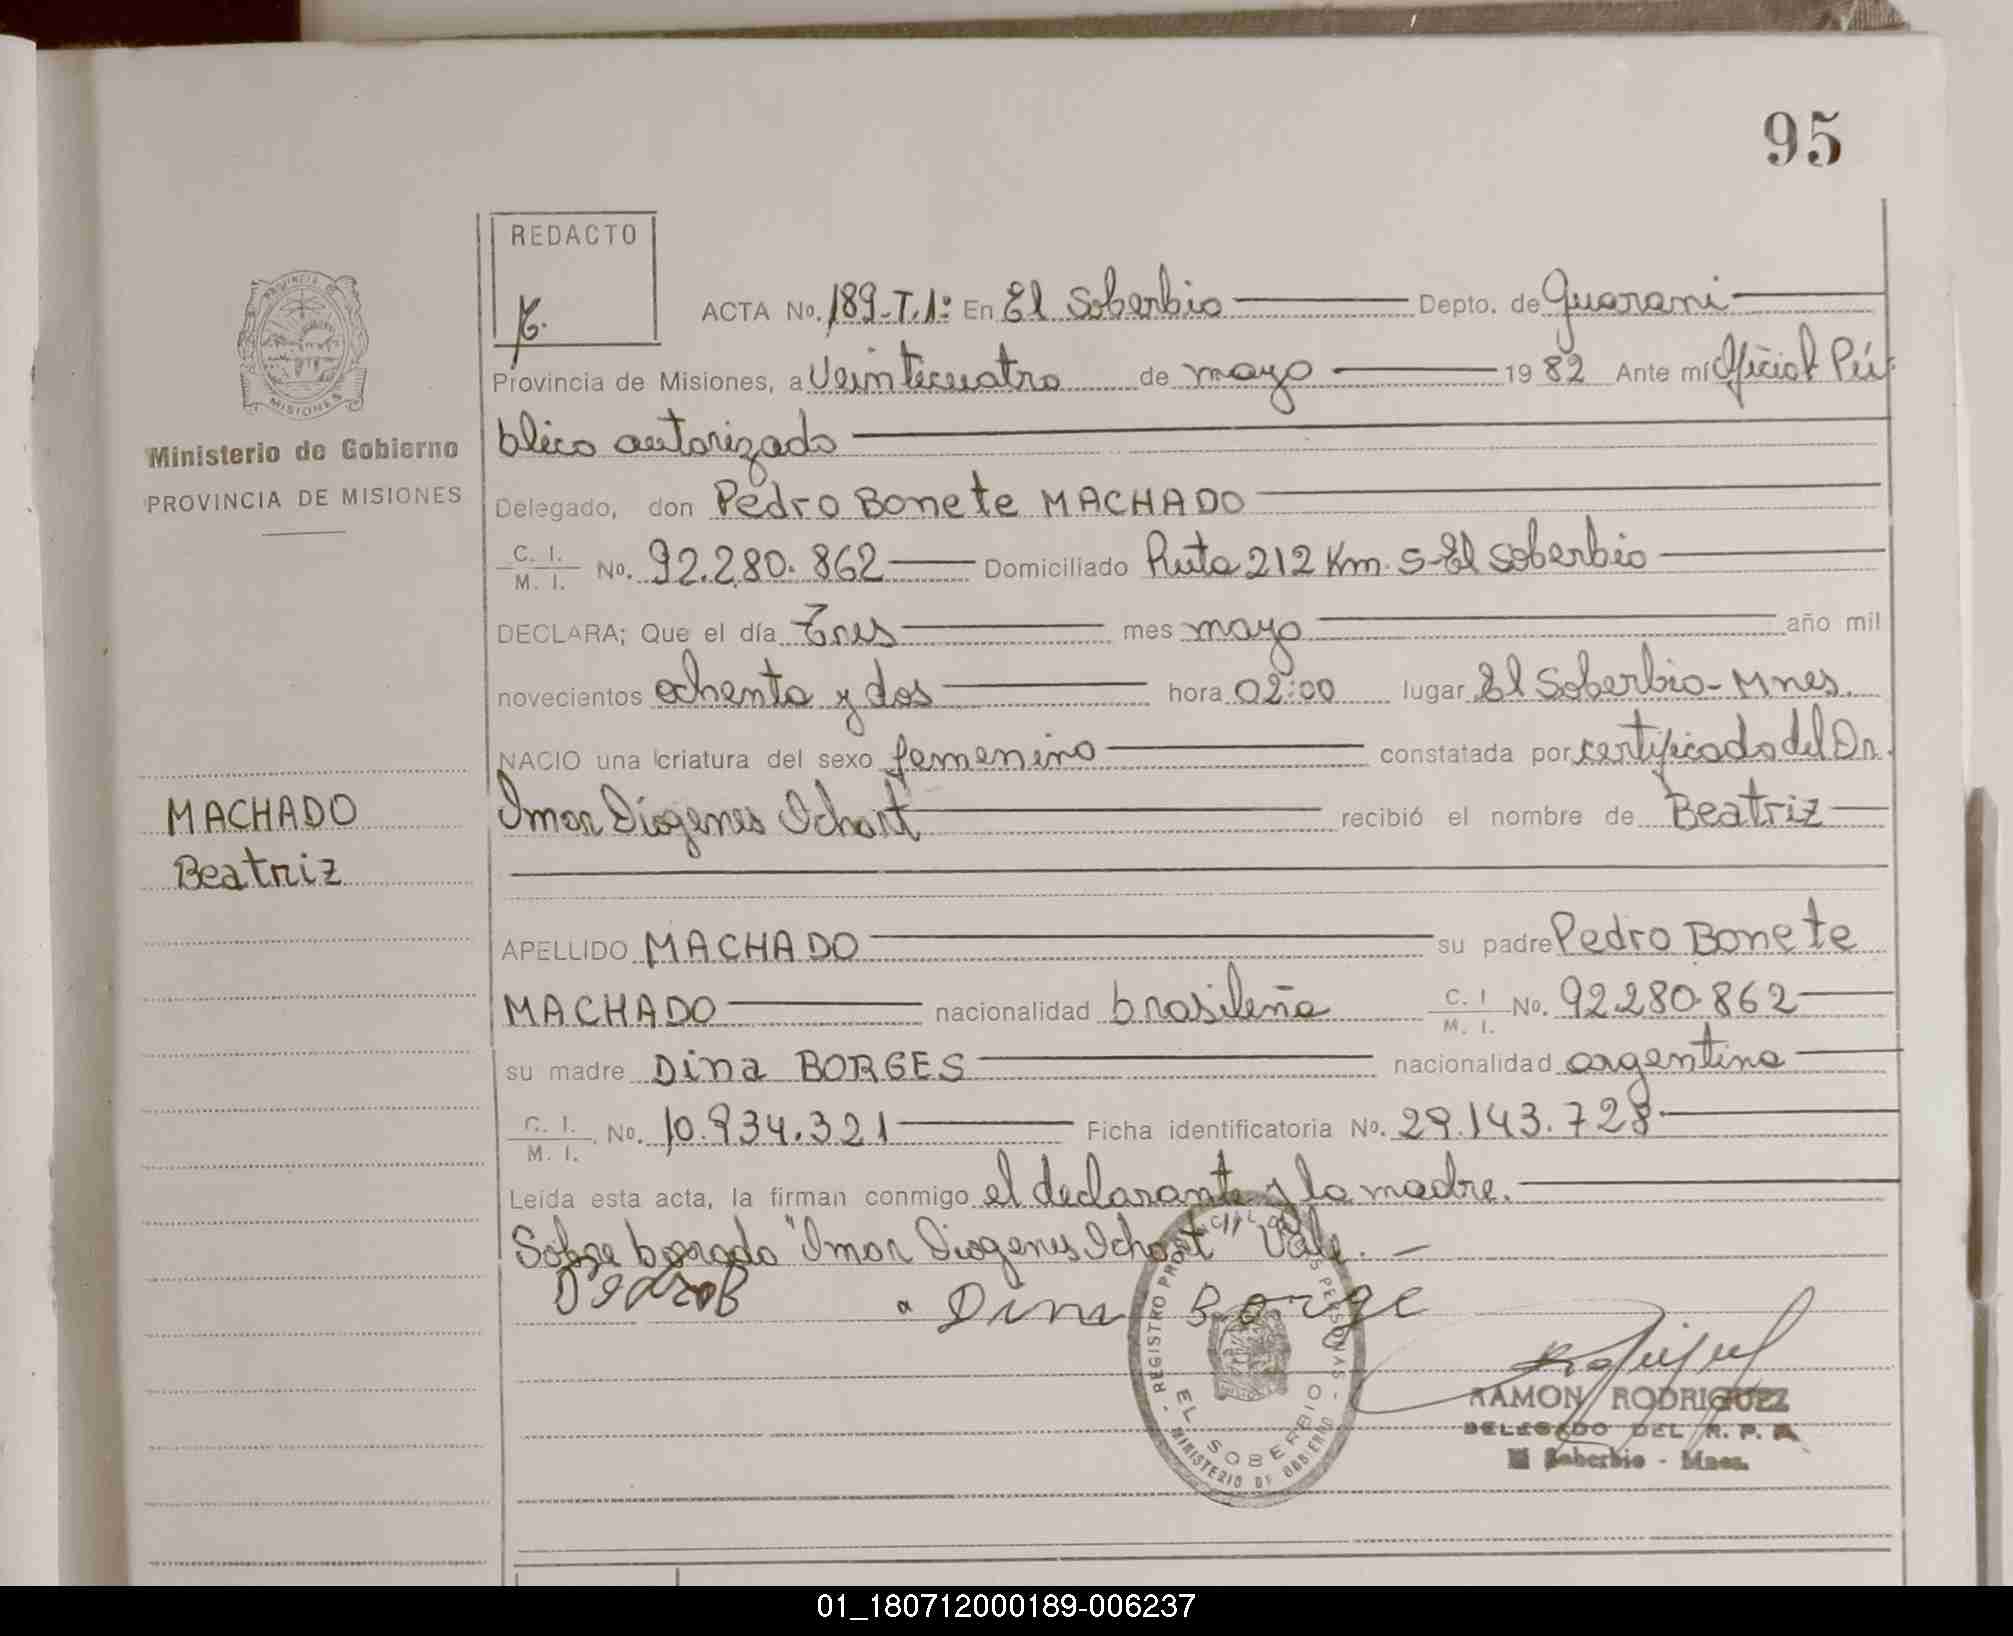 95
REDACTO
ACTA No. 189-T.1º En El Soberbio Depto. de Guarani
Provincia de Misiones, a Veinticuatro de mayo 1982 Ante mí Oficial Pú-
blico autorizado
Ministerio de Gobierno
PROVINCIA DE MISIONES
Delegado, don Pedro Bonete MACHADO
C. I. / M. I. No. 92.280.862 Domiciliado Ruta 212 Km. 5-El Soberbio
DECLARA; Que el día Tres mes mayo año mil
novecientos ochenta y dos hora 02:00 lugar El Soberbio-Mnes.
NACIO una criatura del sexo femenino constatada por certificado del Dr.
Imar Diogenes Ichart recibió el nombre de Beatriz
MACHADO
Beatriz
APELLIDO MACHADO su padre Pedro Bonete
MACHADO nacionalidad brasileña C. I / M. I. No. 92.280.862
su madre Dina BORGES nacionalidad argentina
C. I. / M. I. No. 10.934.321 Ficha identificatoria No. 29.143.728
Leída esta acta, la firman conmigo el declarante y la madre.
Sobre borrado "Imar Diogenes Ichart" Vale.
Dina Borge
RAMON RODRIGUEZ
DELEGADO DEL R. P. P.
El Soberbio - Mnes.
EL SOBERBIO
MINISTERIO DE GOBIERNO
01_180712000189-006237